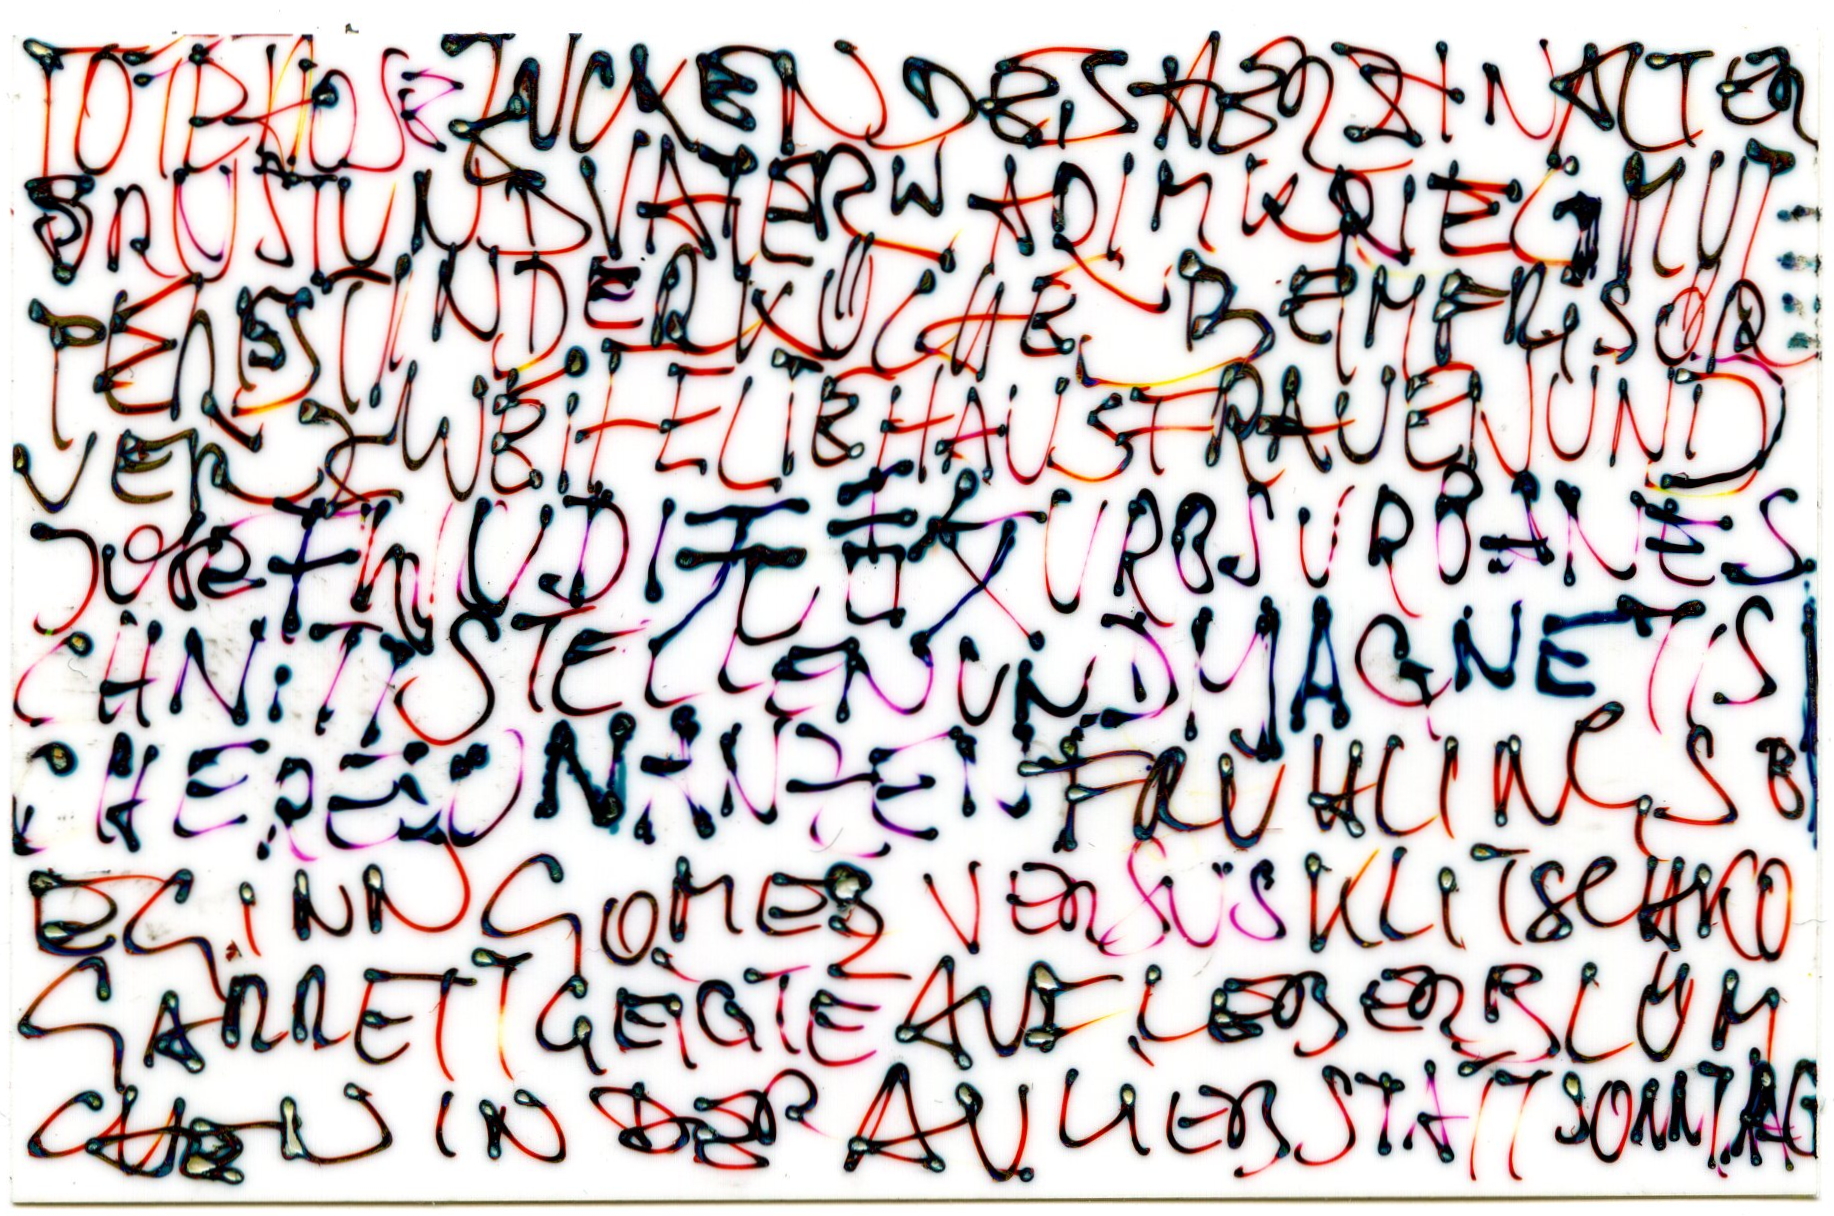 TOTEHOSE ZUCKEN DES HERZ IN ALTER
BRUSTUNDVATERWARIMKRIEGMUT
TERISTINDERKÜCHE BEIMFRISÖR
VERZWEIFELTEHAUSFRAUENUND
JOSEFWUDI无敌URBSURBANES
CHNITTSTELLENUNDMAGNETIS
CHERESONANZEN FRÜHLINGSB
EGINN GOMEZ VERSUS KLITSCHKO
GARRETT GEIGTE AUF LEBERBLÜM
CHEN IN DER AU LIEBSTATTSONNTAG